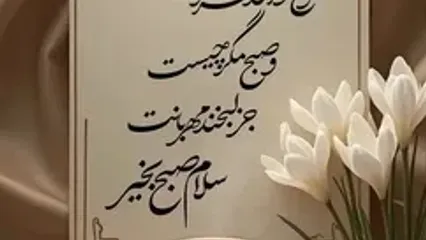 و صبح مگر چیست
جز لبخند مهربانت
سلام صبح بخیر